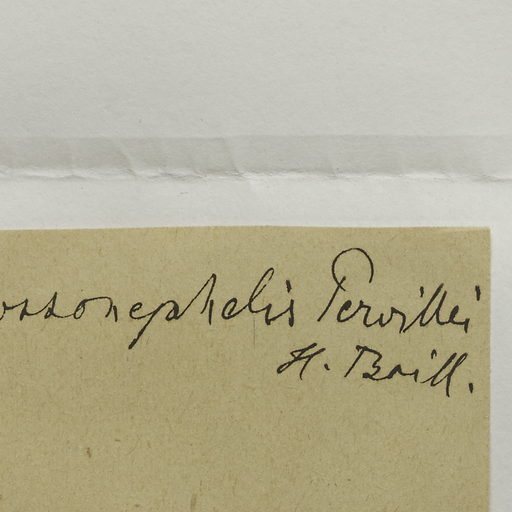 ossonephelis Pervillei
H. Baill.